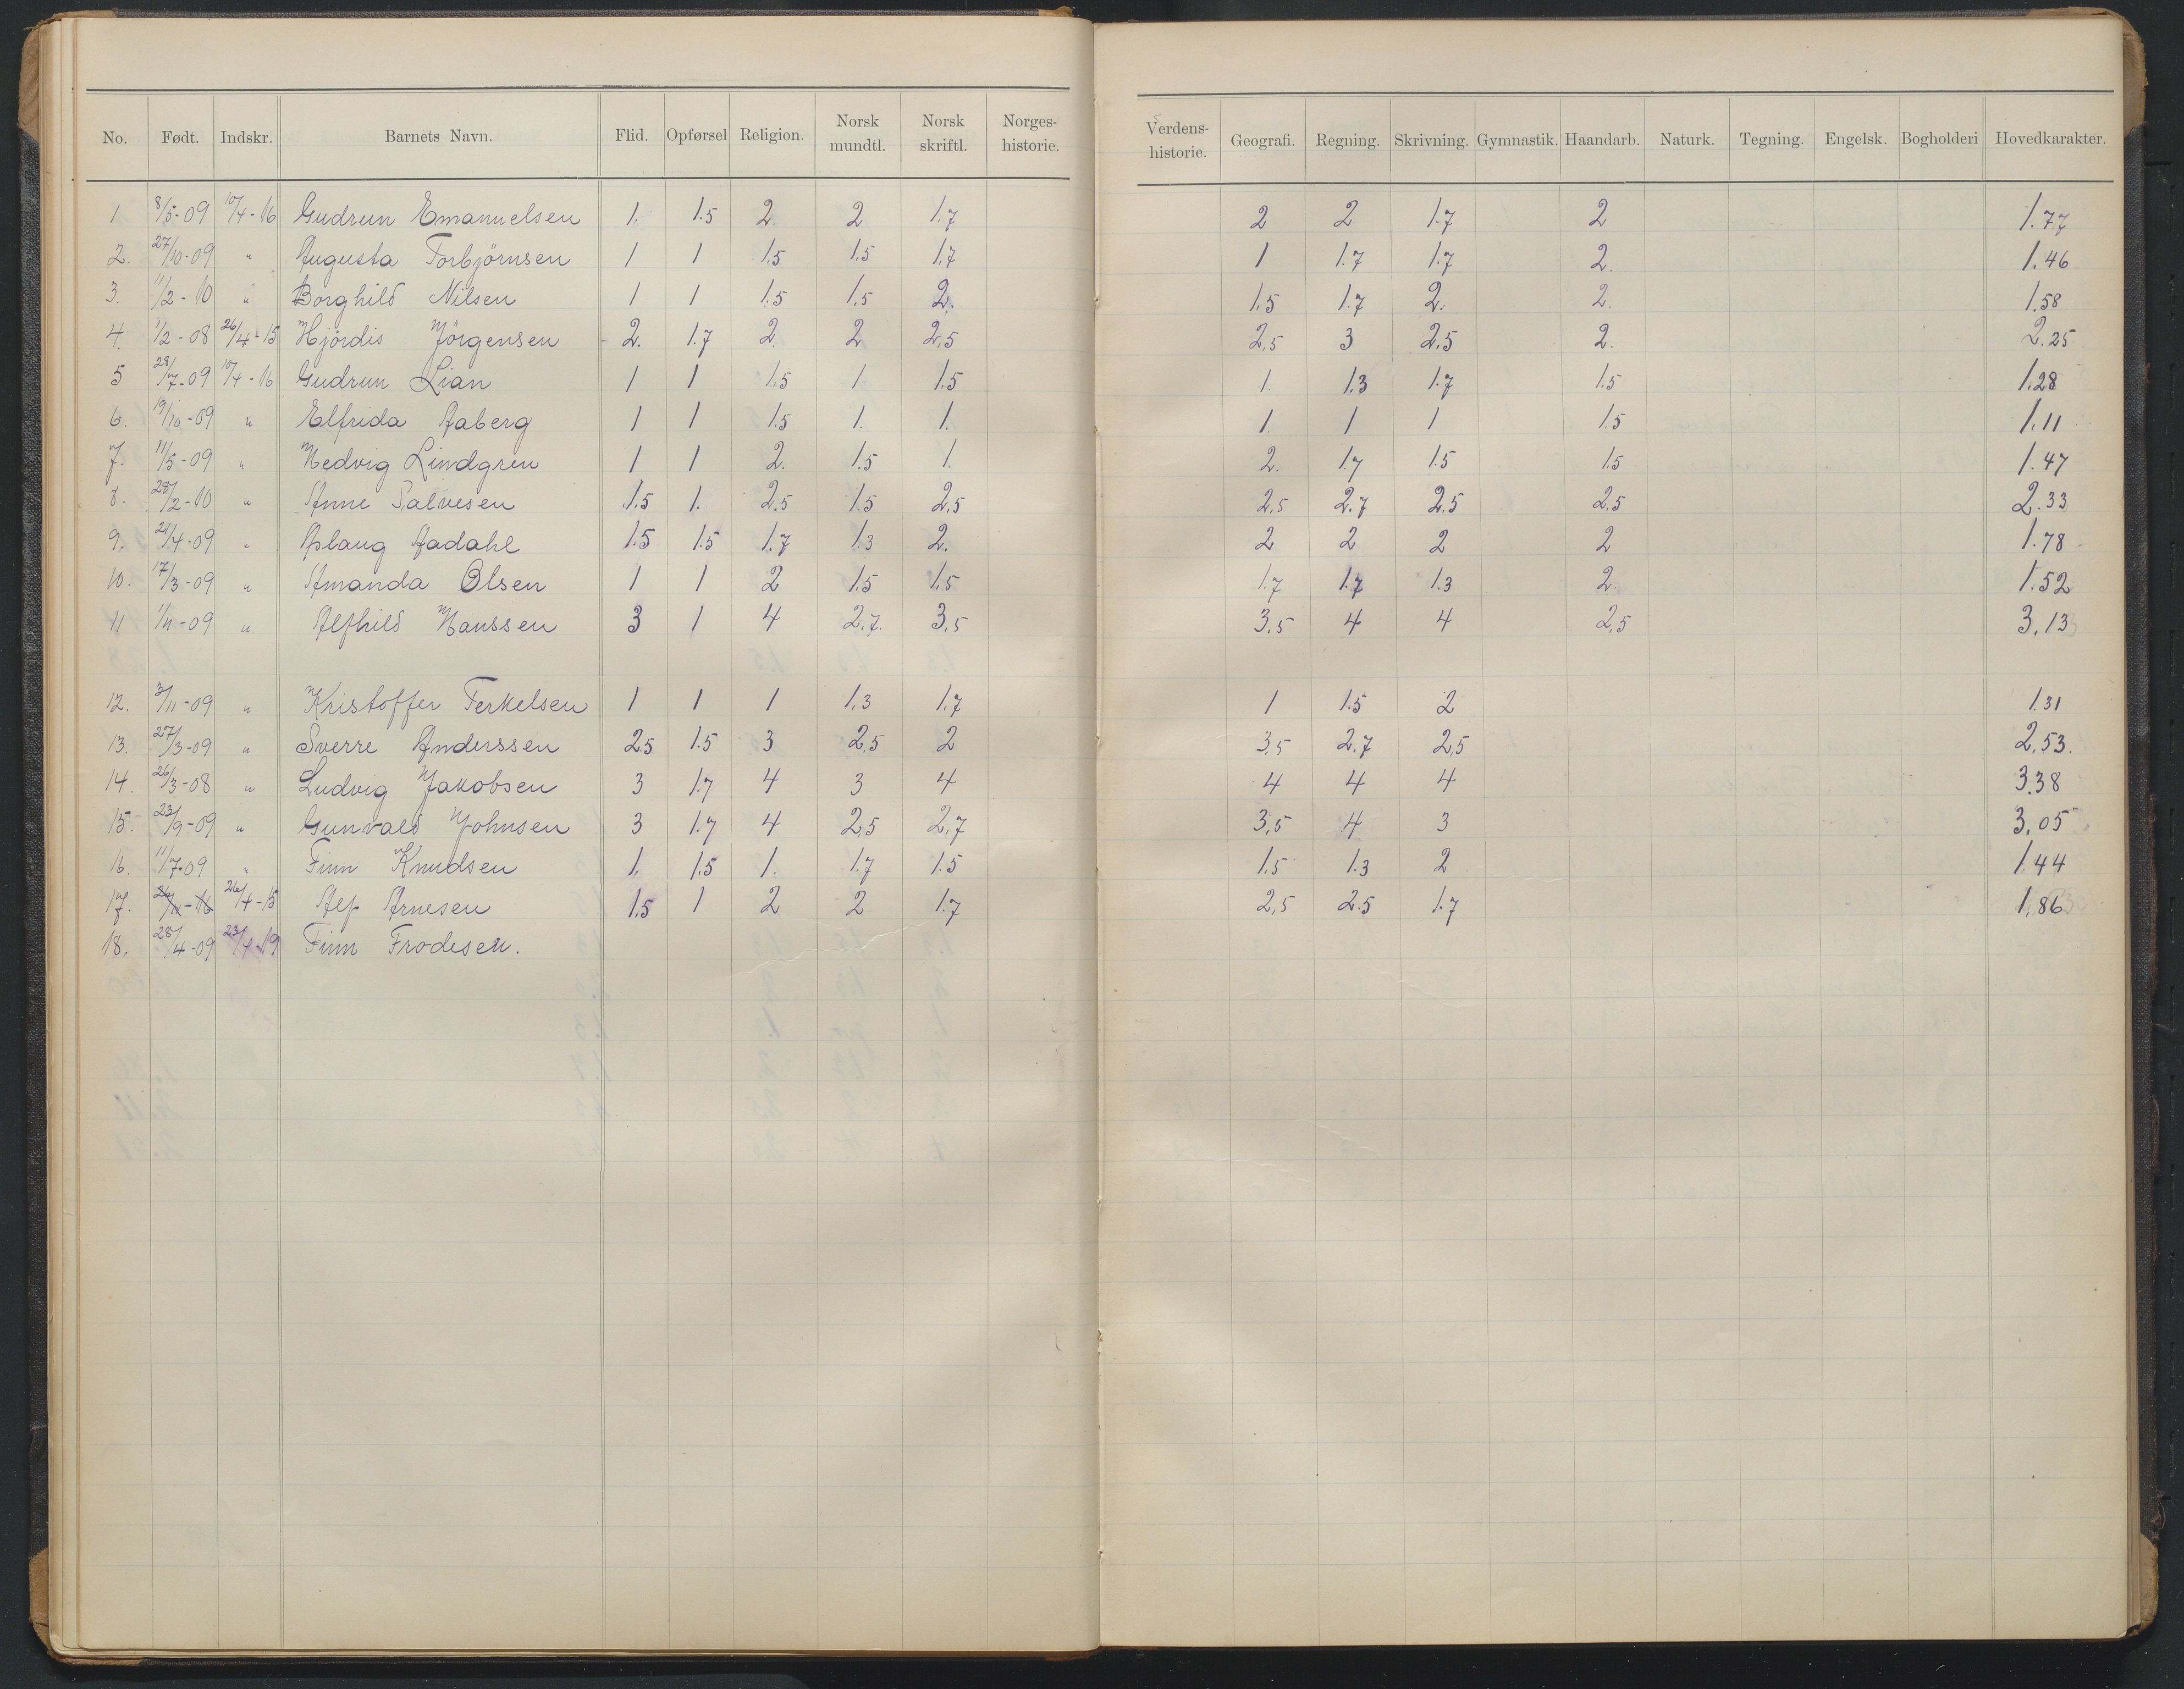 No. Født. Indskr. Barnets Navn. Flid. Opførsel Religion. Norsk mundtl. Norsk skriftl. Norges-historie. Verdens-historie. Geografi. Regning. Skrivning. Gymnastik. Haandarb. Naturk. Tegning. Engelsk. Bogholderi Hovedkarakter.
1 8/5-09 10/4-16 Gudrun Emanuelsen 1. 1.5 2. 2 1.7 2 2 1.7 2 1.77
2. 27/10-09 " Augusta Torbjörnsen 1 1 1.5 1.5 1.7 1 1.7 1.7 2. 1.46
3. 11/2-10 " Borghild Nilsen 1 1 1.5 1.5 2. 1.5 1.7 2. 2. 1.58
4. 1/2-08 26/4-15 Hjördis Jörgensen 2. 1.7 2. 2 2,5 2,5 3 2.5 2. 2.25
5 28/7-09 10/4-16 Gudrun Lian 1 1 1.5 1 1.5 1. 1.3 1.7 1.5 1.28
6. 19/10-09 " Elfrida Aaberg 1 1 1.5 1. 1. 1. 1 1 1.5 1.11
7. 11/5-09 " Hedvig Lindgren 1 1 2. 1.5 1. 2. 1.7 1.5 1.5 1.47
8. 28/2-10 " Anne Salvesen 1.5 1. 2.5 1.5 2,5 2,5 2.7 2.5 2.5 2.33
9. 21/4-09 " Aslaug Aadahl 1.5 1.5 1.7 1.3 2. 2 2 2 2 1.78
10. 17/3-09 " Amanda Olsen 1 1 2 1.5 1.5 1.7 1.7 1.3 2. 1.52
11 1/11-09 " Alfhild Hanssen 3 1 4 2.7. 3,5 3,5 4 4 2,5 3.13
12. 3/11-09 " Kristoffer Terkelsen 1 1 1 1.3 1.7 1 1.5 2 1.31
13. 27/3-09 " Sverre Anderssen 2.5 1.5 3 2.5 2 3,5 2.7 2,5 2,53.
14. 26/3-08 " Ludvig Jakobsen 3 1.7 4 3 4 4 4 4 3.38
15. 23/9-09 " Gunvald Johnsen 3 1.7 4 2,5 2.7 3,5 4 3 3.05
16. 11/7-09 " Finn Knudsen 1. 1.5 1. 1.7 1.5 1.5 1.3 2 1.44
17. 26/4-15 Alf Arnesen 1.5 1 2 2 1.7 2,5 2.5 1.7 1,86
18. 28/4-09 23/4-19 Finn Frodesen.